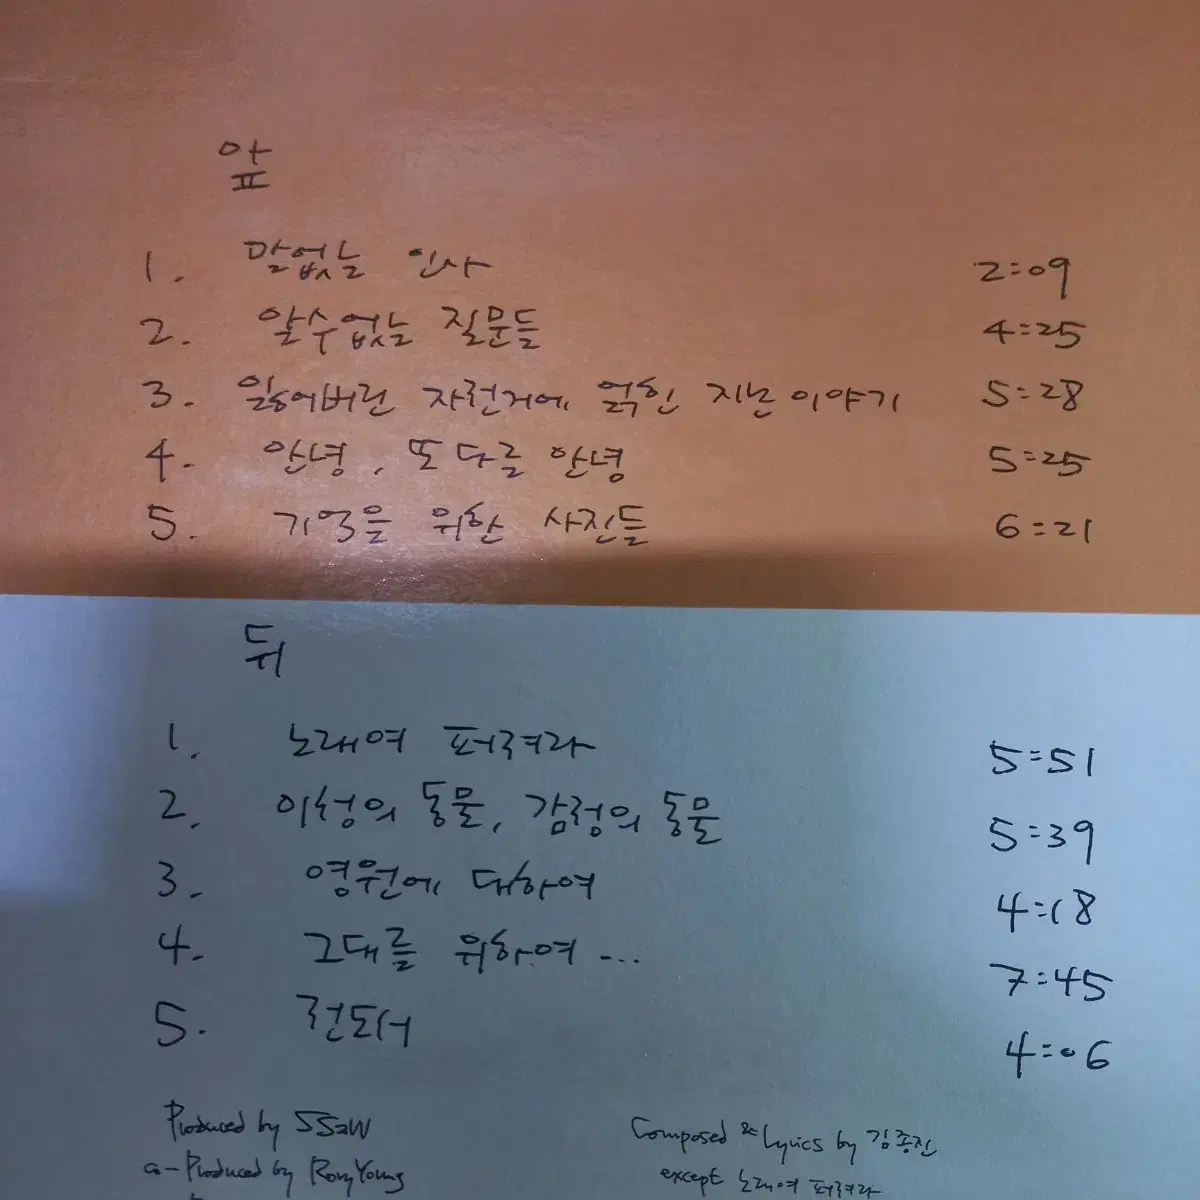 앞
1. 말없는 인사 2:09
2. 알수없는 질문들 4:25
3. 잃어버린 자전거에 얽힌 지난 이야기 5:28
4. 안녕, 또 다른 안녕 5:25
5. 기억을 위한 사진들 6:21
뒤
1. 노래여 퍼져라 5:51
2. 이성의 동물, 감정의 동물 5:39
3. 영원에 대하여 4:18
4. 그대를 위하여 ... 7:45
5. 전도서 4:06
Produced by SSaW Composed & Lyrics by 김종진
co-Produced by Rory Young except 노래여 퍼져라